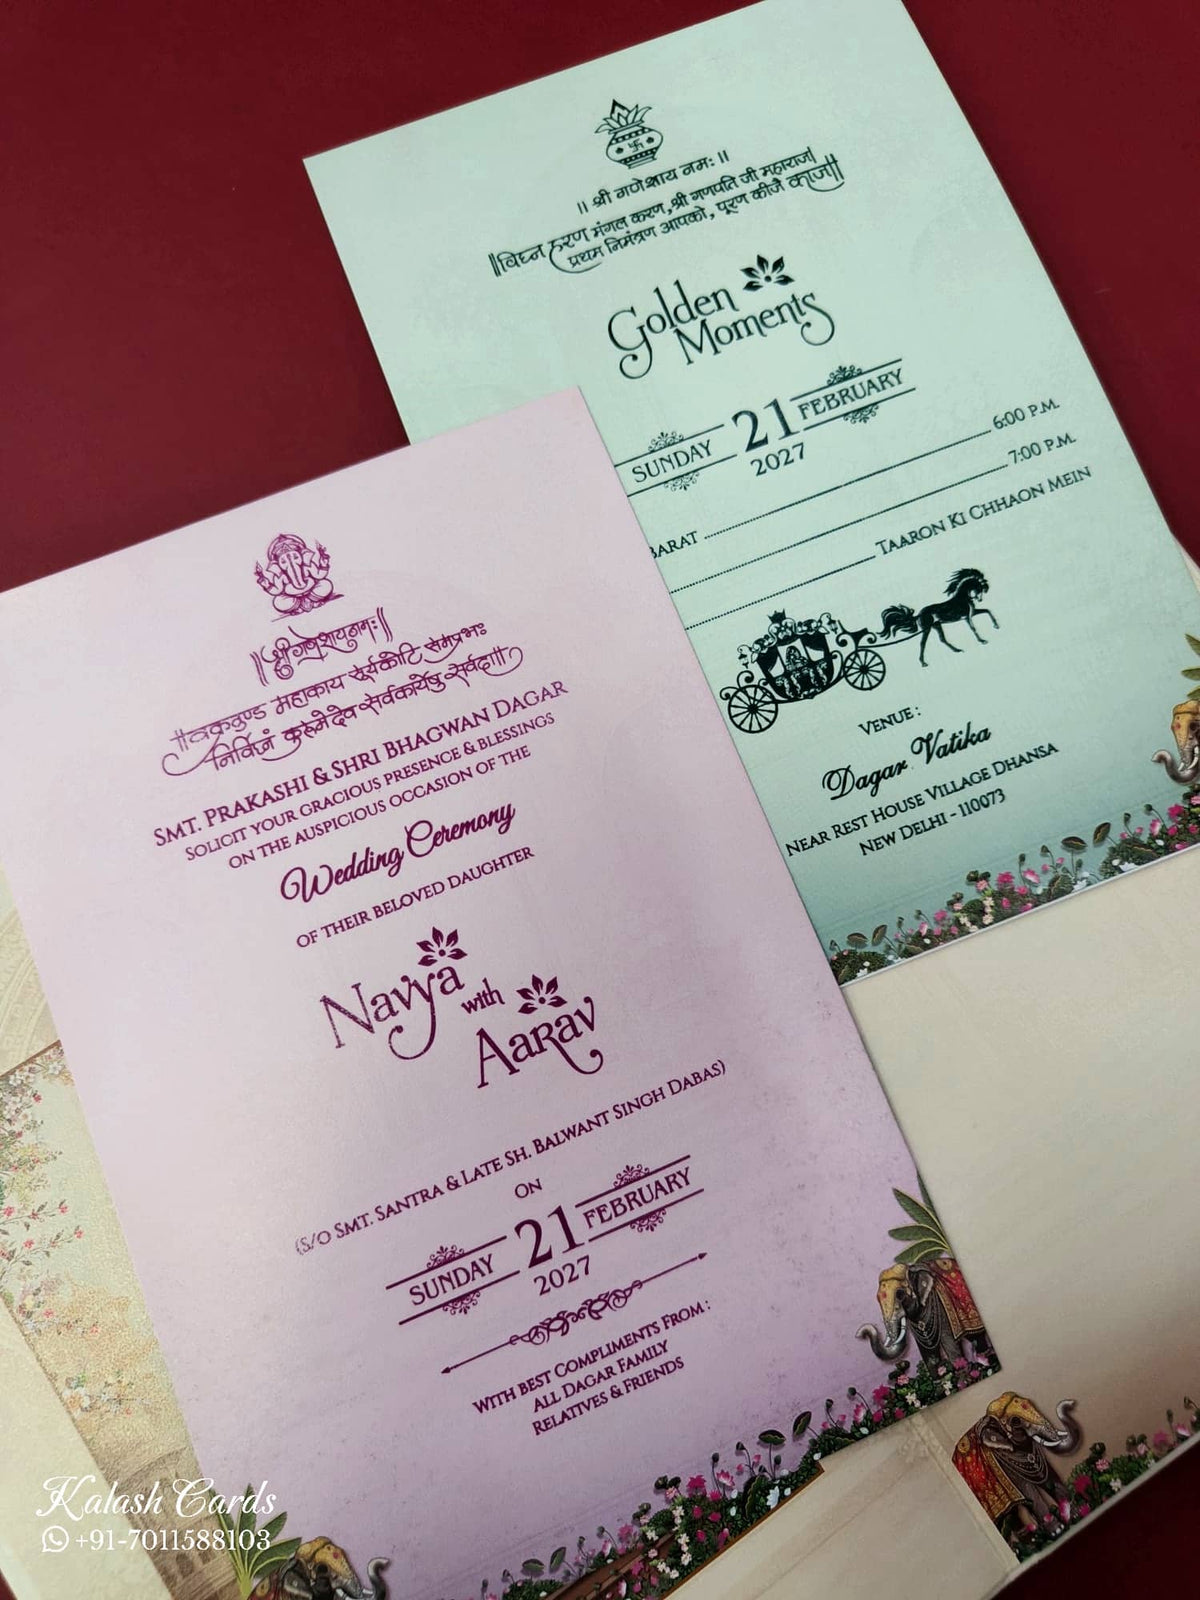 ॥ श्री गणेशाय नमः ॥
॥विघ्न हरण मंगल करण,श्री गणपति जी महाराज।
प्रथम निमंत्रण आपको, पूरण कीजै काज॥
Golden
Moments
SUNDAY 21 FEBRUARY
2027
BARAT 6:00 P.M.
7:00 P.M.
TAARON KI CHHAON MEIN
VENUE :
Dagar Vatika
NEAR REST HOUSE VILLAGE DHANSA
NEW DELHI - 110073
॥श्री गणेशाय नमः॥
॥वक्रतुण्ड महाकाय सूर्यकोटि समप्रभः
निर्विघ्नं कुरूमेदेव सर्वकार्येषु सर्वदा॥
SMT. PRAKASHI & SHRI BHAGWAN DAGAR
SOLICIT YOUR GRACIOUS PRESENCE & BLESSINGS
ON THE AUSPICIOUS OCCASION OF THE
Wedding Ceremony
OF THEIR BELOVED DAUGHTER
Navya
with
Aarav
(S/O SMT. SANTRA & LATE SH. BALWANT SINGH DABAS)
ON
SUNDAY 21 FEBRUARY
2027
WITH BEST COMPLIMENTS FROM :
ALL DAGAR FAMILY
RELATIVES & FRIENDS
Kalash Cards
+91-7011588103